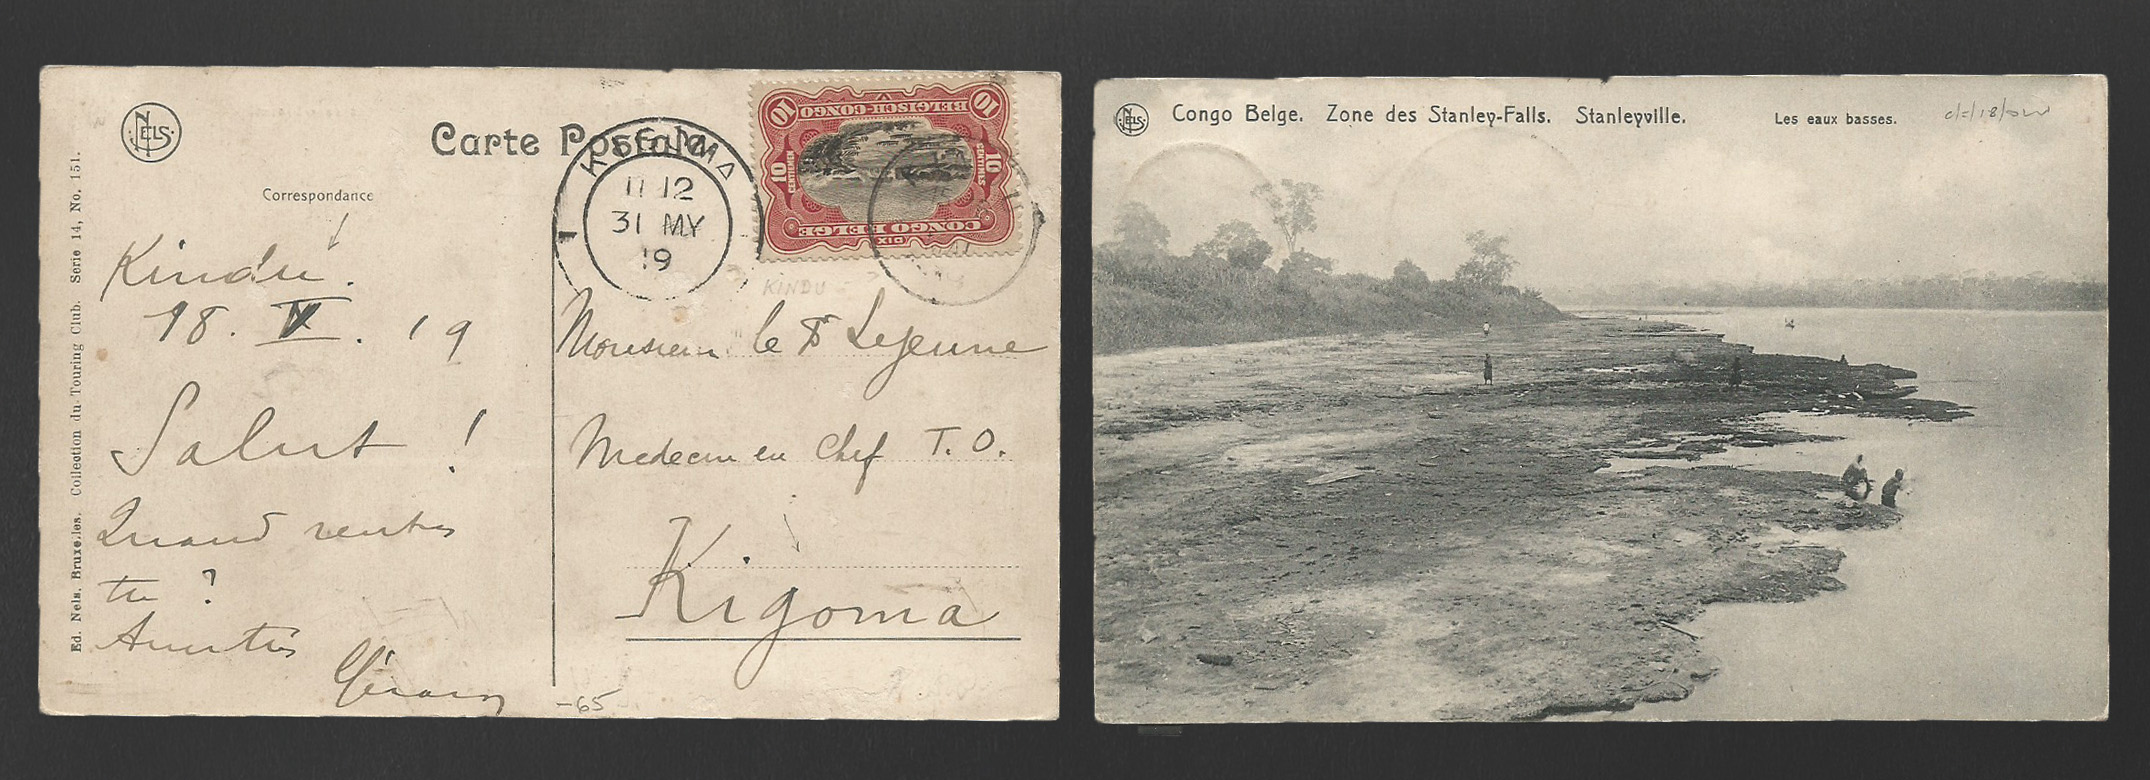 NELS
Carte Postale
Correspondance
Ed. Nels, Bruxelles. Collection du Touring Club. Serie 14, No. 151.
Kindu.
18. V. 19
Salut !
Quand rentres
tu ?
Amitiés
Gérard
KIGOMA
11 12
31 MY
19
1
BELGISCH-CONGO
10
10
10 CENTIEMEN
10 CENTIMES
DIX
CONGO BELGE
KINDU
Monsieur le Dr Lejeune
Medecin en Chef T.O.
Kigoma
-65
NELS
Congo Belge. Zone des Stanley-Falls. Stanleyville.
Les eaux basses.